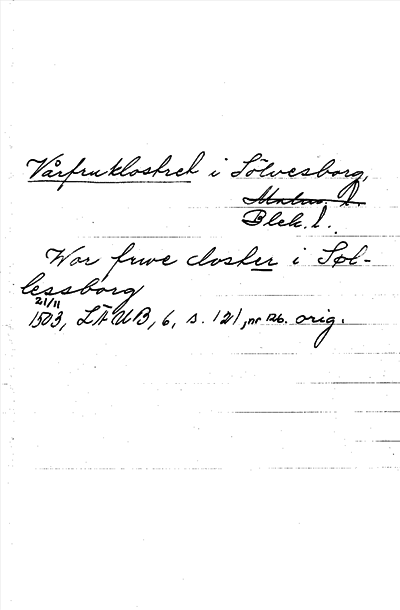 Vårfruklostret i Sölvesborg,
Malmö. l.
Blek. l.
Wor frwe closter i Søl-
lessborg
21/11
1503, LÄUB, 6, s. 121, nr 126. orig.